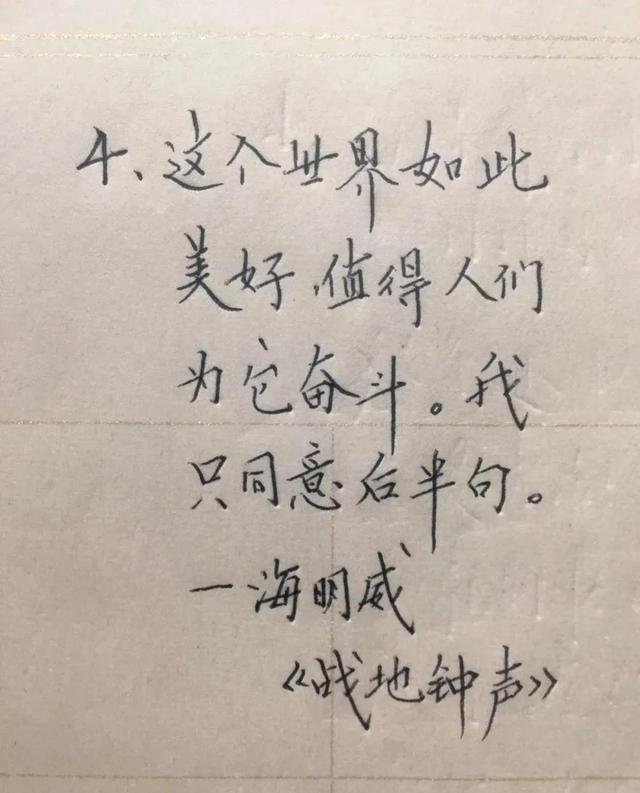 4、这个世界如此
美好,值得人们
为它奋斗。我
只同意后半句。
一海明威
《战地钟声》